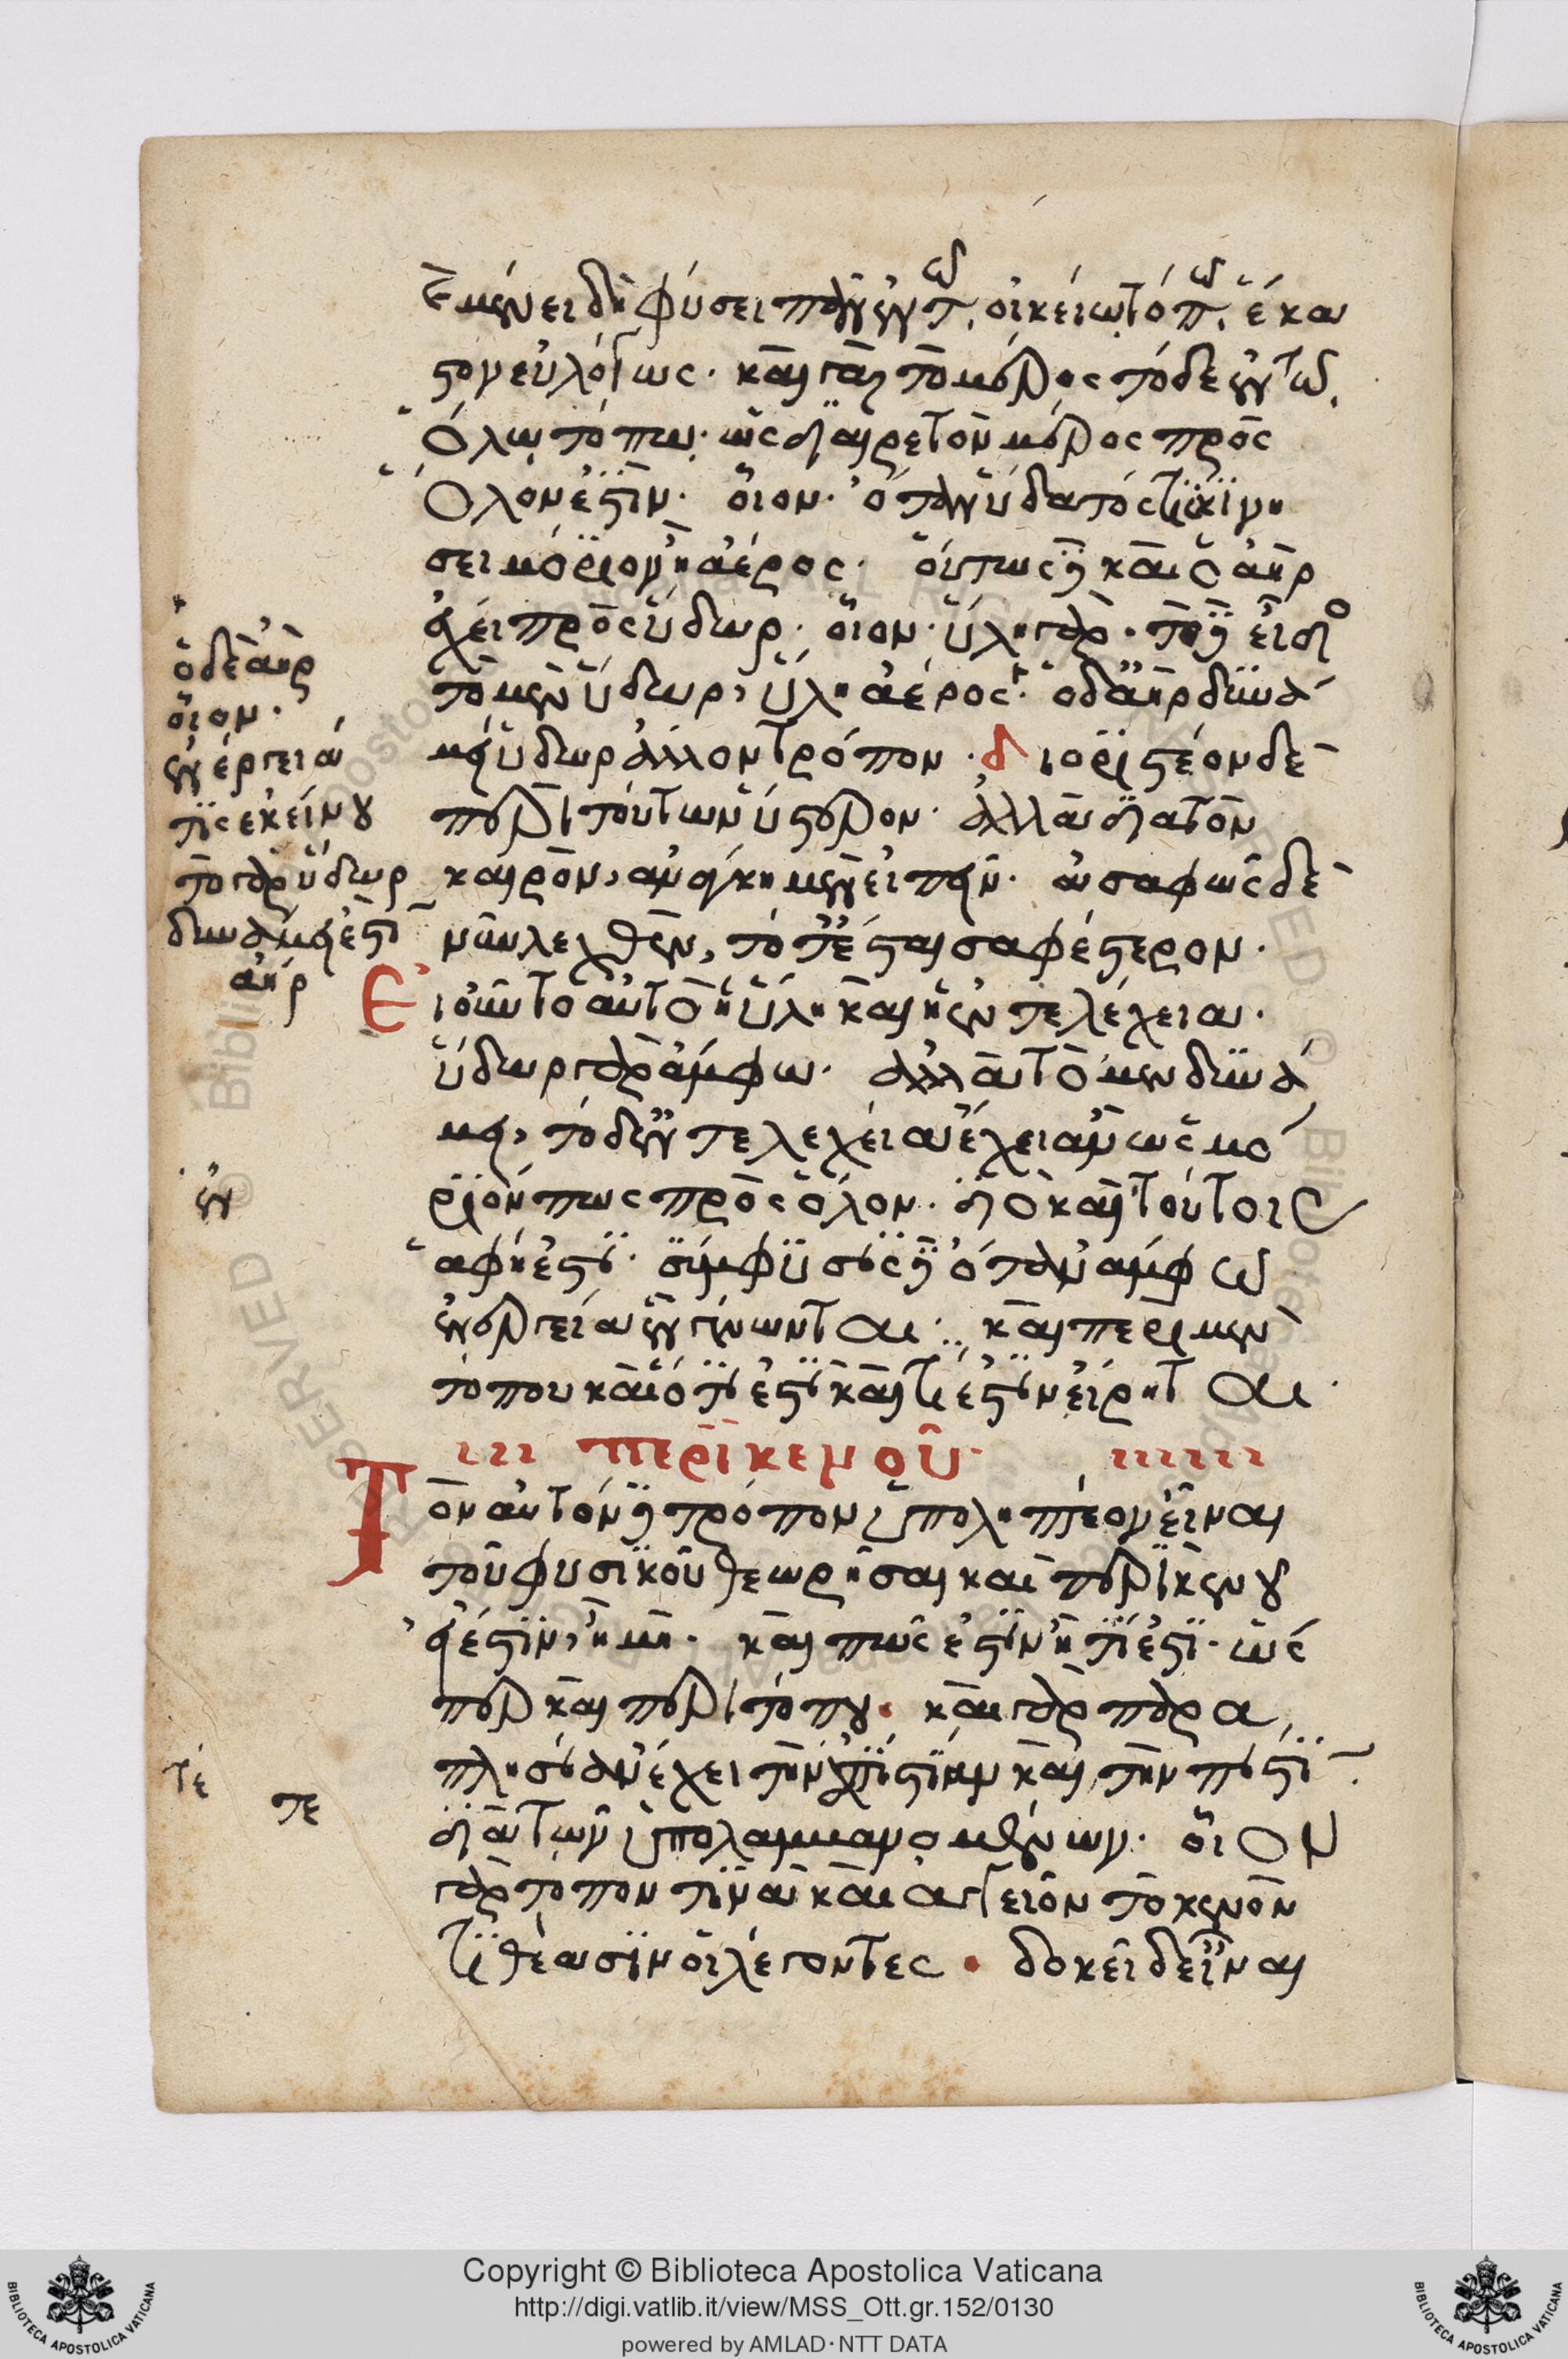 μένει δὴ φύσει πᾶν ἐν τῷ οἰκείῳ τόπῳ ἕκα
στον εὐλόγως· καὶ γὰρ τὸ μέρος τόδε ἐν τῷ
ὅλῳ τόπῳ· ὡς διαιρετὸν μέρος πρὸς
ὅλον ἐστίν· οἷον· ὅταν ὕδατός τι κινή
σει μόριον ἢ ἀέρος· οὕτως δὲ καὶ ὁ ἀὴρ
ἔχει πρὸς ὕδωρ· οἷον· ὕλη γὰρ· τὸ δὲ εἶδο
τὸ μὲν ὕδωρ, ὕλη ἀέρος· ὁ δ' ἀὴρ δυνά
μει ὕδωρ ἄλλον τρόπον· διοριστέον δὲ
περὶ τούτων ὕστερον· ἀλλὰ διὰ τὸν
καιρὸν, ἀνάγκη μὲν εἰπεῖν· ἀσαφῶς δὲ
νῦν λεχθὲν, τότ' ἔσται σαφέστερον·
Εἰ οὖν τὸ αὐτὸ ἡ ὕλη καὶ ἡ ἐντελέχεια·
ὕδωρ γὰρ ἄμφω· ἀλλὰ τὸ μὲν δυνά
μει, τὸ δ' ἐντελεχείᾳ ἔχει ἂν ὡς μό
ριόν πως πρὸς ὅλον· διὸ καὶ τούτοις
ἁφή ἐστι· σύμφυσις δὲ ὅταν ἄμφω
ἐνεργείᾳ ἓν γίνωνται· καὶ περὶ μὲν
τόπου καὶ ὅτι ἐστὶ καὶ τί ἐστιν εἴρηται·
περὶ κενοῦ·
Τὸν αὐτὸν δὲ τρόπον ὑποληπτέον εἶναι
τοῦ φυσικοῦ θεωρῆσαι καὶ περὶ κενοῦ
εἰ ἔστιν, ἢ μή· καὶ πῶς ἐστὶν ἢ τί ἐστι· ὡς
περ καὶ περὶ τόπου· καὶ γὰρ παρα
πλησίαν ἔχει τὴν ἀπιστίαν καὶ τὴν πίστι
διὰ τῶν ὑπολαμβανομένων· οἷον
γὰρ τόπον τινὰ καὶ ἀγγεῖον τὸ κενὸν
τιθέασιν οἱ λέγοντες· δοκεῖ δ' εἶναι
ὁ δὲ ἀὴρ
οἷον·
ἐνέργειά
τις ἐκείνου
τὸ γὰρ ὕδωρ
δυνάμει ἐστὶ
ἀήρ
ἐν
τέ
τε
Copyright © Biblioteca Apostolica Vaticana
http://digi.vatlib.it/view/MSS_Ott.gr.152/0130
powered by AMLAD·NTT DATA
BIBLIOTECA APOSTOLICA VATICANA
BIBLIOTECA APOSTOLICA VATICANA